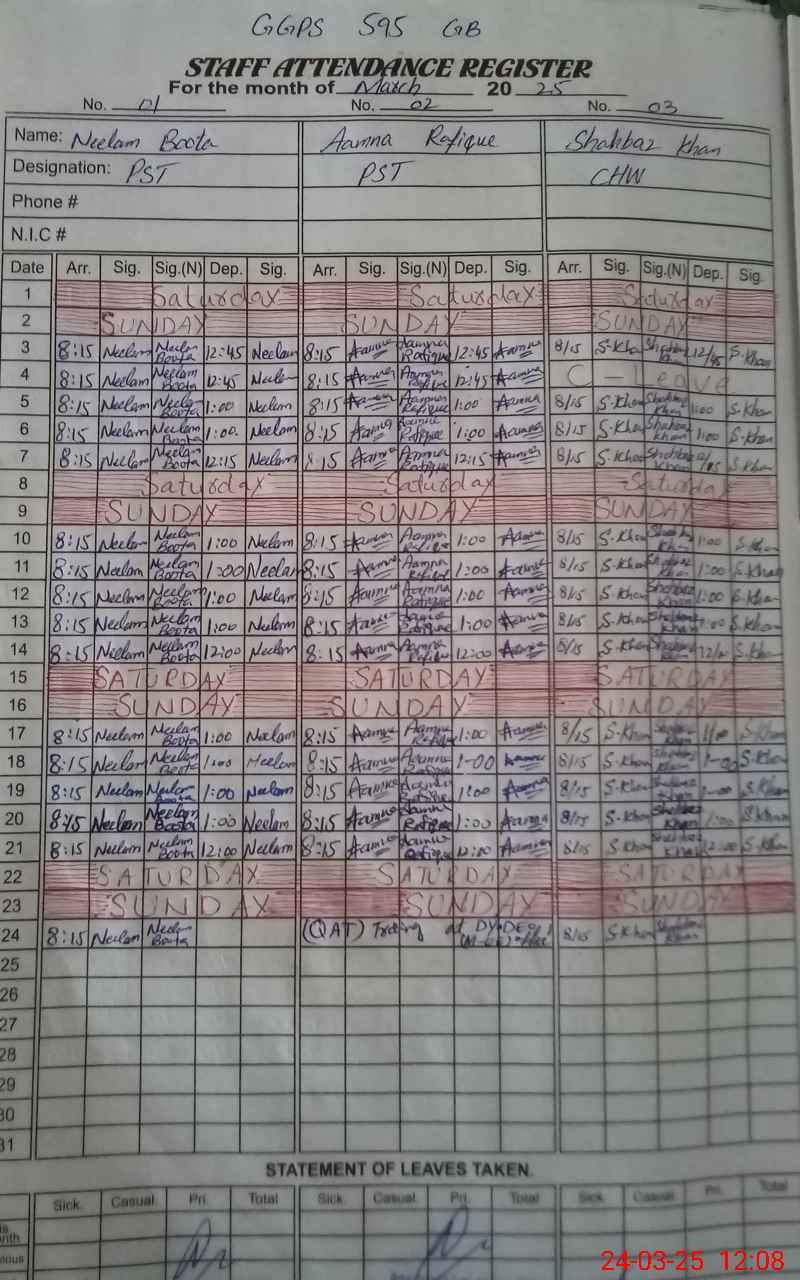 GGPS 595 GB
STAFF ATTENDANCE REGISTER
For the month of March 20 25
No. 01 No. 02 No. 03
Name: Neelam Boota Aamna Rafique Shahbaz Khan
Designation: PST PST CHW
Phone #
N.I.C #
Date Arr. Sig. Sig.(N) Dep. Sig. Arr. Sig. Sig.(N) Dep. Sig. Arr. Sig. Sig.(N) Dep. Sig.
1 Saturday Saturday Saturday
2 SUNDAY SUNDAY SUNDAY
3 8:15 Neelam Neelam Boota 12:45 Neelam 8:15 Aamna Aamna Rafique 12:45 Aamna 8/15 S-Khan Shahbaz Khan 12/45 S.Khan
4 8:15 Neelam Neelam Boota 12:45 Neelam 8:15 Aamna Aamna Rafique 12:45 Aamna C Leave
5 8:15 Neelam Neelam Boota 1:00 Neelam 8:15 Aamna Aamna Rafique 1:00 Aamna 8/15 S-Khan Shahbaz Khan 1:00 S-Khan
6 8:15 Neelam Neelam Boota 1:00 Neelam 8:15 Aamna Aamna Rafique 1:00 Aamna 8/15 S-Khan Shahbaz Khan 1:00 S-Khan
7 8:15 Neelam Neelam Boota 12:15 Neelam 8:15 Aamna Aamna Rafique 12:15 Aamna 8/15 S-Khan Shahbaz Khan S-Khan
8 Saturday Saturday Saturday
9 SUNDAY SUNDAY SUNDAY
10 8:15 Neelam Neelam Boota 1:00 Neelam 8:15 Aamna Aamna Rafique 1:00 Aamna 8/15 S-Khan Shahbaz Khan 1:00 S-Khan
11 8:15 Neelam Neelam Boota 1:00 Neelam 8:15 Aamna Aamna Rafique 1:00 Aamna 8/15 S-Khan Shahbaz Khan 1:00 S-Khan
12 8:15 Neelam Neelam Boota 1:00 Neelam 8:15 Aamna Aamna Rafique 1:00 Aamna 8/15 S-Khan Shahbaz Khan 1:00 S-Khan
13 8:15 Neelam Neelam Boota 1:00 Neelam 8:15 Aamna Aamna Rafique 1:00 Aamna 8/15 S-Khan Shahbaz Khan 1:00 S-Khan
14 8:15 Neelam Neelam Boota 12:00 Neelam 8:15 Aamna Aamna Rafique 12:00 Aamna 8/15 S-Khan Shahbaz Khan S-Khan
15 SATURDAY SATURDAY SATURDAY
16 SUNDAY SUNDAY SUNDAY
17 8:15 Neelam Neelam Boota 1:00 Neelam 8:15 Aamna Aamna Rafique 1:00 Aamna 8/15 S-Khan Shahbaz Khan 1/00 S-Khan
18 8:15 Neelam Neelam Boota 1:00 Neelam 8:15 Aamna Aamna Rafique 1-00 Aamna 8/15 S-Khan Shahbaz Khan 1-00 S-Khan
19 8:15 Neelam Neelam Boota 1:00 Neelam 8:15 Aamna Aamna Rafique 1:00 Aamna 8/15 S-Khan Shahbaz Khan 1-00 S-Khan
20 8:15 Neelam Neelam Boota 1:00 Neelam 8:15 Aamna Aamna Rafique 1:00 Aamna 8/15 S-Khan Shahbaz Khan 1:00 S.Khan
21 8:15 Neelam Neelam Boota 12:00 Neelam 8:15 Aamna Aamna Rafique 12:00 Aamna 8/15 S-Khan Shahbaz Khan 12:00 S.Khan
22 SATURDAY SATURDAY SATURDAY
23 SUNDAY SUNDAY SUNDAY
24 8:15 Neelam Neelam Boota (QAT) at DY.DEO 8/15 S-Khan Shahbaz Khan
25
26
27
28
29
30
31
STATEMENT OF LEAVES TAKEN.
Sick. Casual. Pri. Total Sick. Casual. Pri. Total Sick. Casual. Pri. Total
24-03-25 12:08